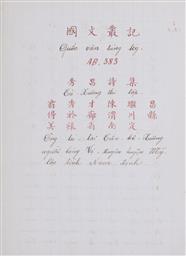 國文叢記
Quốc văn tùng ký.
AB. 383
秀昌詩集
Tú Xương thi tập.
翁秀才陳 昌
傅於廊渭川縣
美祿 南定
Ông tú tài Trần Tế Xương
người làng Vị Xuyên huyện Mỹ
Lộc tỉnh Nam Định